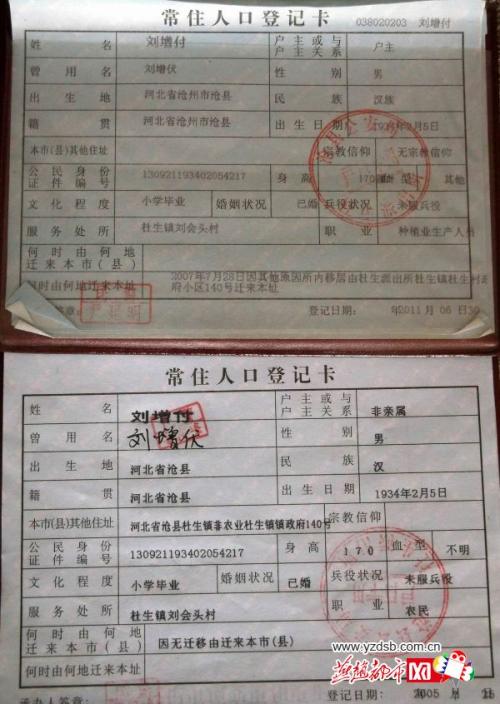 常住人口登记卡 038020203 刘增付
姓名 刘增付 户主或与户主关系 户主
曾用名 刘增伏 性别 男
出生地 河北省沧州市沧县 民族 汉族
籍贯 河北省沧州市沧县 出生日期 1934年2月5日
本市(县)其他住址 宗教信仰 无宗教信仰
公民身份证件编号 130921193402054217 身高 170 血型 其他
文化程度 小学毕业 婚姻状况 已婚 兵役状况 未服兵役
服务处所 杜生镇刘会头村 职业 种植业生产人员
何时由何地迁来本市(县)
何时由何地迁来本址 2007年7月28日因其他原因所内移居由杜生派出所杜生镇杜生村政府小区140号迁来本址
签章： 登记日期： 年2011月06日30
常住人口登记卡
姓名 刘增付 户主或与户主关系 非亲属
曾用名 刘增伏 性别 男
出生地 河北省沧县 民族 汉
籍贯 河北省沧县 出生日期 1934年2月5日
本市(县)其他住址 河北省沧县杜生镇非农业杜生镇镇政府140号 宗教信仰
公民身份证件编号 130921193402054217 身高 170 血型 不明
文化程度 小学毕业 婚姻状况 已婚 兵役状况 未服兵役
服务处所 杜生镇刘会头村 职业 农民
何时由何地迁来本市(县) 因无迁移由迁来本市(县)
何时由何地迁来本址
承办人签章： 登记日期： 2005年 月 日
www.yzdsb.com.cn
燕赵都市网